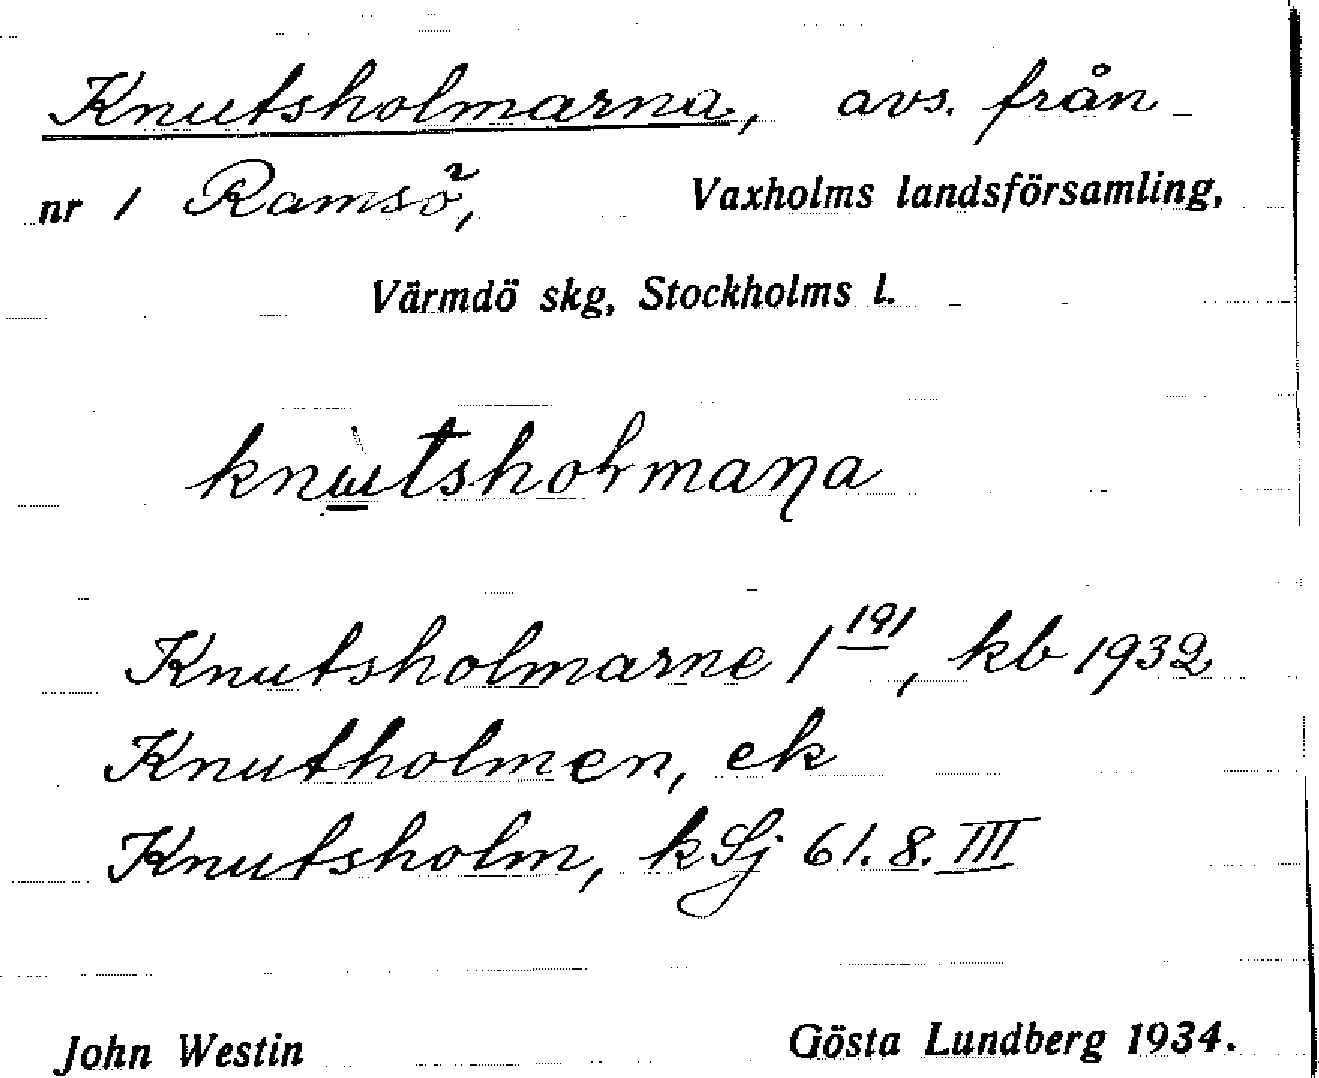 Knutsholmarna, avs. från
nr 1 Ramsö, Vaxholms landsförsamling,
Värmdö skg, Stockholms l.
knutsholmaƞa
Knutsholmarne 1 191, kb 1932
Knutholmen, ek
Knutsholm, kSj 61.8.III
John Westin Gösta Lundberg 1934.